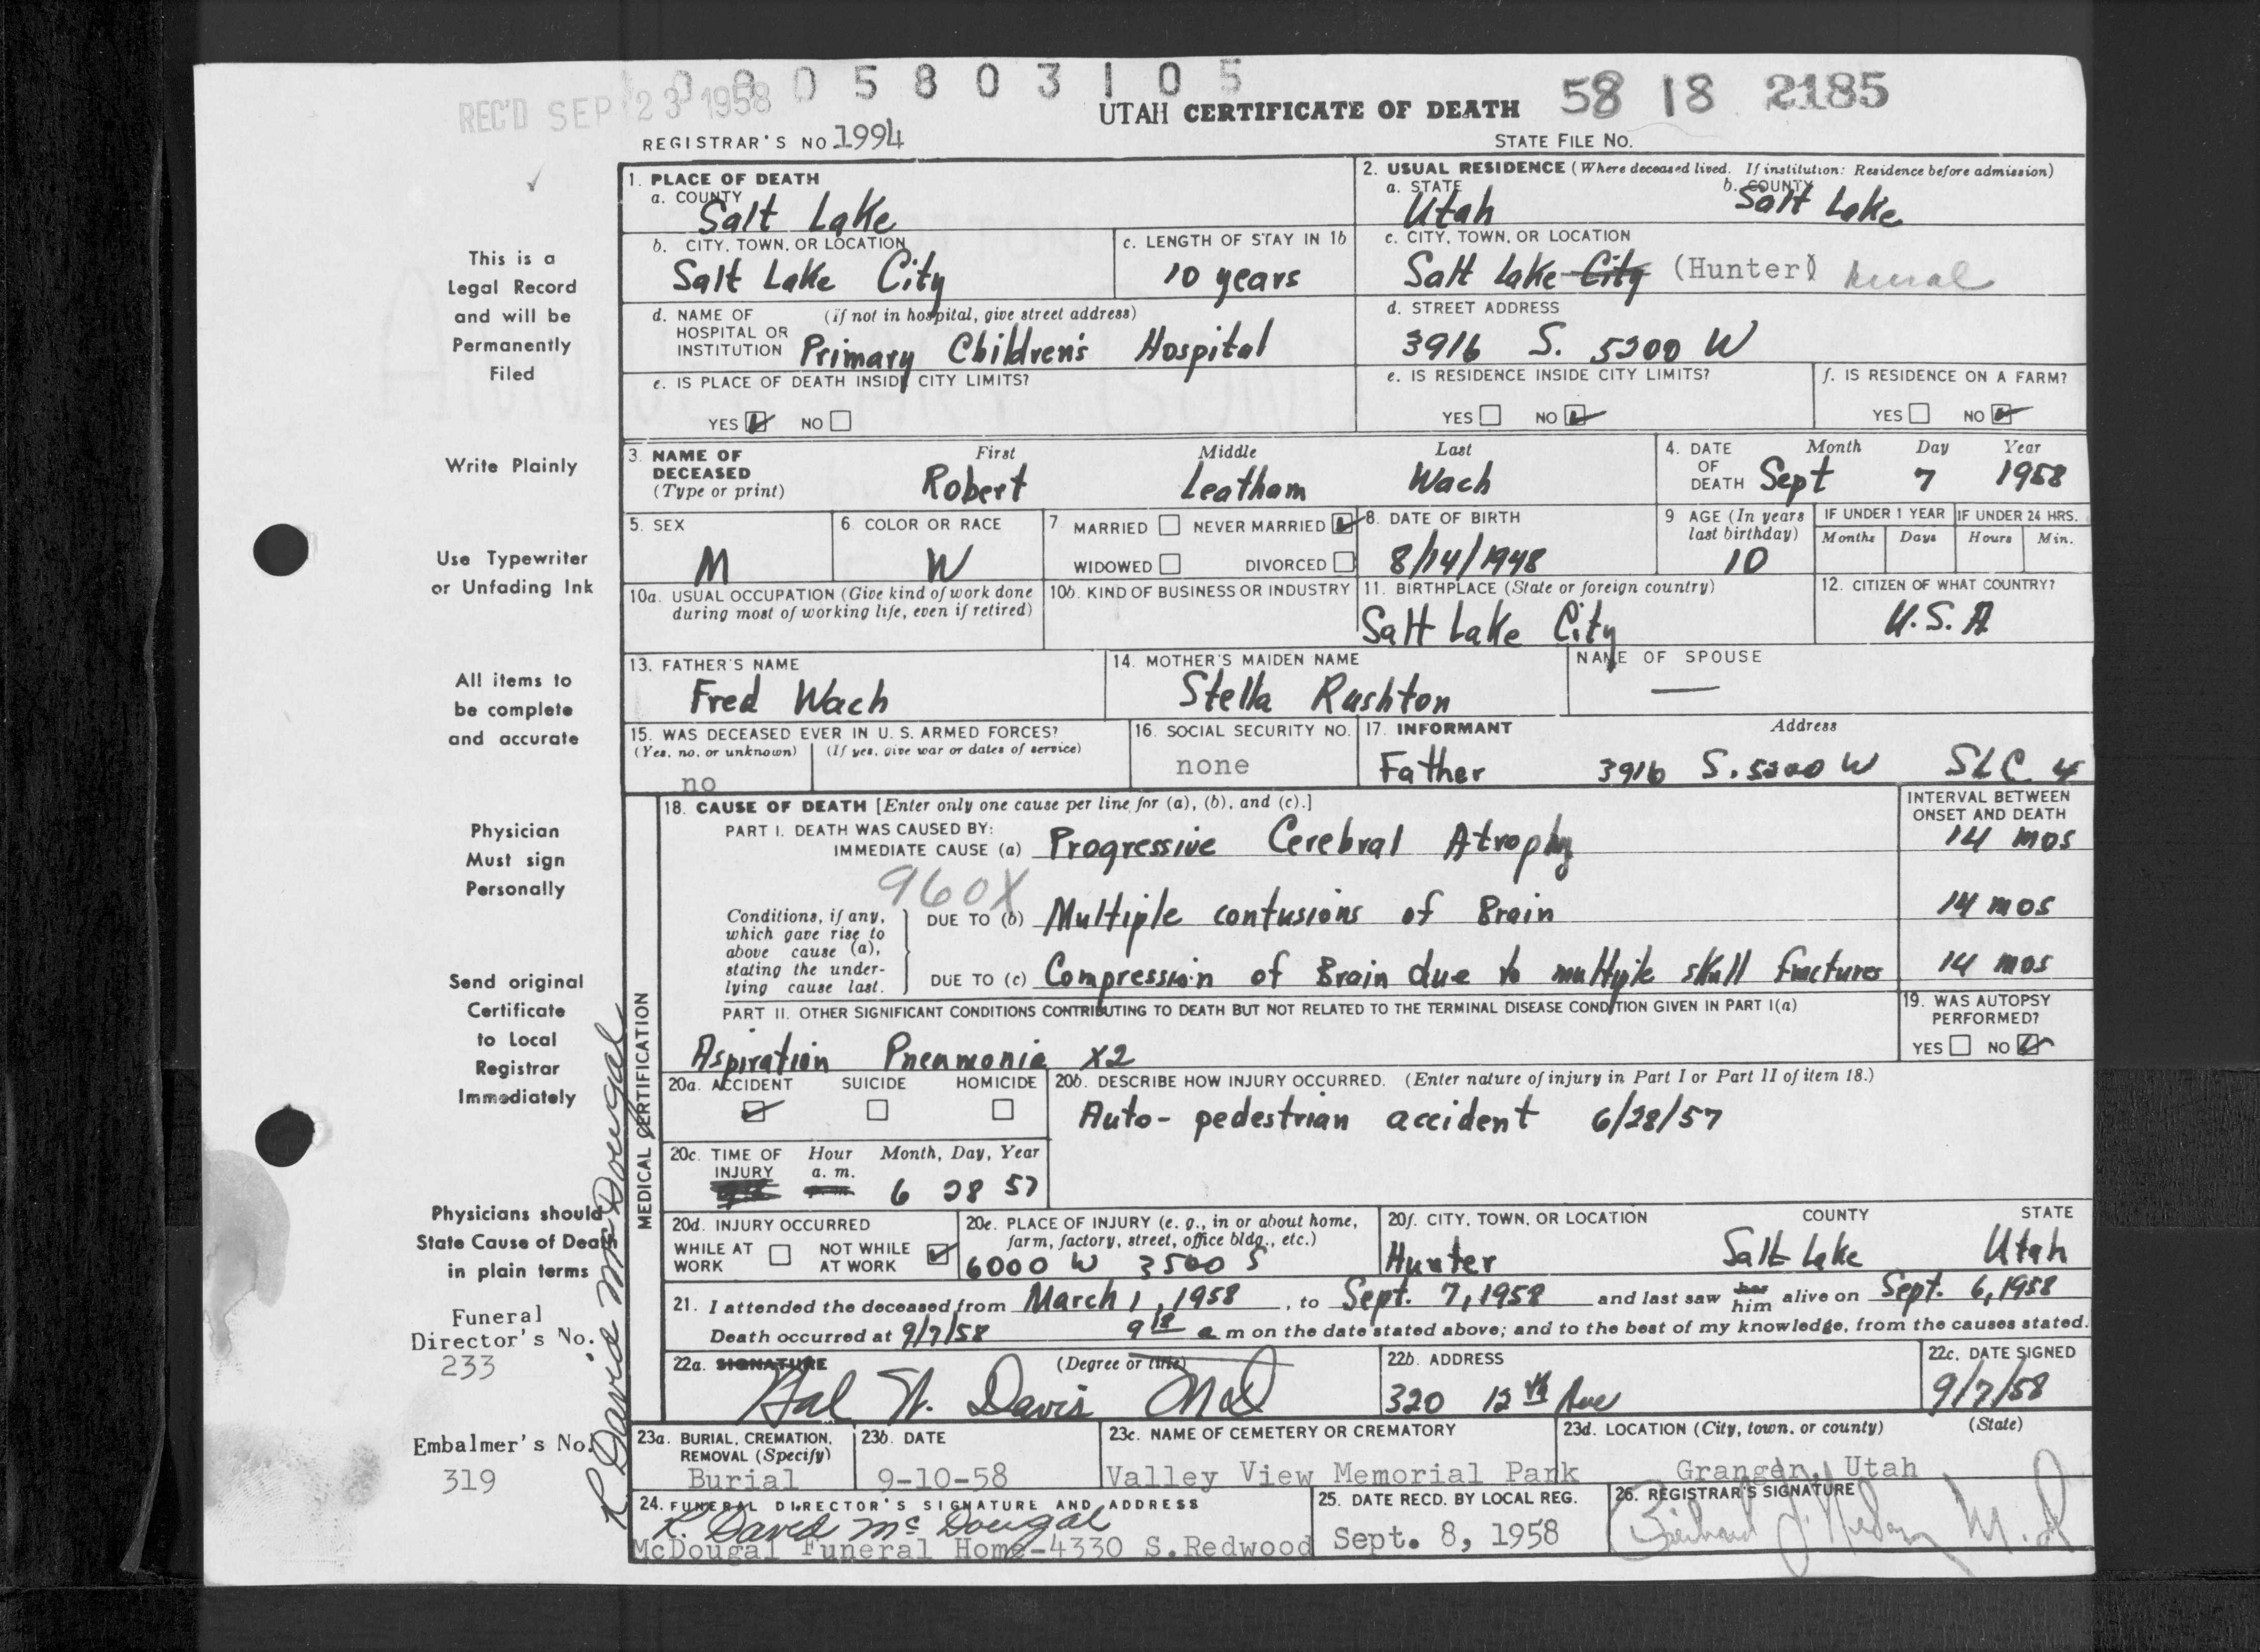 0 0 0 5 8 0 3 1 0 5
REC'D SEP 23 1958
UTAH CERTIFICATE OF DEATH 58 18 2185
REGISTRAR'S NO 1994 STATE FILE NO.
1. PLACE OF DEATH
a. COUNTY
Salt Lake
2. USUAL RESIDENCE (Where deceased lived. If institution: Residence before admission)
a. STATE b. COUNTY
Utah Salt Lake
b. CITY, TOWN, OR LOCATION
Salt Lake City
c. LENGTH OF STAY IN 1b
10 years
c. CITY, TOWN, OR LOCATION
Salt Lake City (Hunter) rural
d. NAME OF HOSPITAL OR INSTITUTION (If not in hospital, give street address)
Primary Children's Hospital
d. STREET ADDRESS
3916 S. 5200 W
e. IS PLACE OF DEATH INSIDE CITY LIMITS?
YES NO
e. IS RESIDENCE INSIDE CITY LIMITS?
YES NO
f. IS RESIDENCE ON A FARM?
YES NO
3. NAME OF DECEASED (Type or print)
First Middle Last
Robert Leatham Wach
4. DATE OF DEATH Month Day Year
Sept 7 1958
5. SEX
M
6. COLOR OR RACE
W
7. MARRIED NEVER MARRIED
WIDOWED DIVORCED
8. DATE OF BIRTH
8/14/1948
9 AGE (In years last birthday)
10
IF UNDER 1 YEAR
Months Days
IF UNDER 24 HRS.
Hours Min.
10a. USUAL OCCUPATION (Give kind of work done
during most of working life, even if retired)
10b. KIND OF BUSINESS OR INDUSTRY
11. BIRTHPLACE (State or foreign country)
Salt Lake City
12. CITIZEN OF WHAT COUNTRY?
U.S.A
13. FATHER'S NAME
Fred Wach
14. MOTHER'S MAIDEN NAME
Stella Rushton
NAME OF SPOUSE
—
15. WAS DECEASED EVER IN U. S. ARMED FORCES?
(Yes, no, or unknown) (If yes, give war or dates of service)
no
16. SOCIAL SECURITY NO.
none
17. INFORMANT Address
Father 3916 S. 5200 W SLC 4
MEDICAL CERTIFICATION
18. CAUSE OF DEATH [Enter only one cause per line for (a), (b), and (c).]
INTERVAL BETWEEN
ONSET AND DEATH
PART I. DEATH WAS CAUSED BY:
IMMEDIATE CAUSE (a) Progressive Cerebral Atrophy 14 mos
960X
Conditions, if any,
which gave rise to
above cause (a),
stating the under-
lying cause last.
DUE TO (b) Multiple contusions of Brain 14 mos
DUE TO (c) Compression of Brain due to multiple skull fractures 14 mos
PART II. OTHER SIGNIFICANT CONDITIONS CONTRIBUTING TO DEATH BUT NOT RELATED TO THE TERMINAL DISEASE CONDITION GIVEN IN PART I(a)
Aspiration Pneumonia X2
19. WAS AUTOPSY
PERFORMED?
YES NO
20a. ACCIDENT SUICIDE HOMICIDE
20b. DESCRIBE HOW INJURY OCCURRED. (Enter nature of injury in Part I or Part II of item 18.)
Auto-pedestrian accident 6/28/57
20c. TIME OF INJURY Hour a. m. p. m. Month, Day, Year
6 28 57
20d. INJURY OCCURRED
WHILE AT WORK NOT WHILE AT WORK
20e. PLACE OF INJURY (e. g., in or about home,
farm, factory, street, office bldg., etc.)
6000 W 3500 S
20f. CITY, TOWN, OR LOCATION COUNTY STATE
Hunter Salt Lake Utah
21. I attended the deceased from March 1, 1958, to Sept. 7, 1958 and last saw her him alive on Sept. 6, 1958
Death occurred at 9/7/58 9 18 a m on the date stated above; and to the best of my knowledge, from the causes stated.
22a. SIGNATURE (Degree or title)
Hal N. Davis MD
22b. ADDRESS
320 12th Ave
22c. DATE SIGNED
9/7/58
23a. BURIAL, CREMATION,
REMOVAL (Specify)
Burial
23b. DATE
9-10-58
23c. NAME OF CEMETERY OR CREMATORY
Valley View Memorial Park
23d. LOCATION (City, town, or county) (State)
Granger, Utah
24. FUNERAL DIRECTOR'S SIGNATURE AND ADDRESS
R. David McDougal
McDougal Funeral Home-4330 S.Redwood
25. DATE RECD. BY LOCAL REG.
Sept. 8, 1958
26. REGISTRAR'S SIGNATURE
M.D
This is a
Legal Record
and will be
Permanently
Filed
Write Plainly
Use Typewriter
or Unfading Ink
All items to
be complete
and accurate
Physician
Must sign
Personally
Send original
Certificate
to Local
Registrar
Immediately
Physicians should
State Cause of Death
in plain terms
Funeral
Director's No.
233
Embalmer's No.
319
R David McDougal